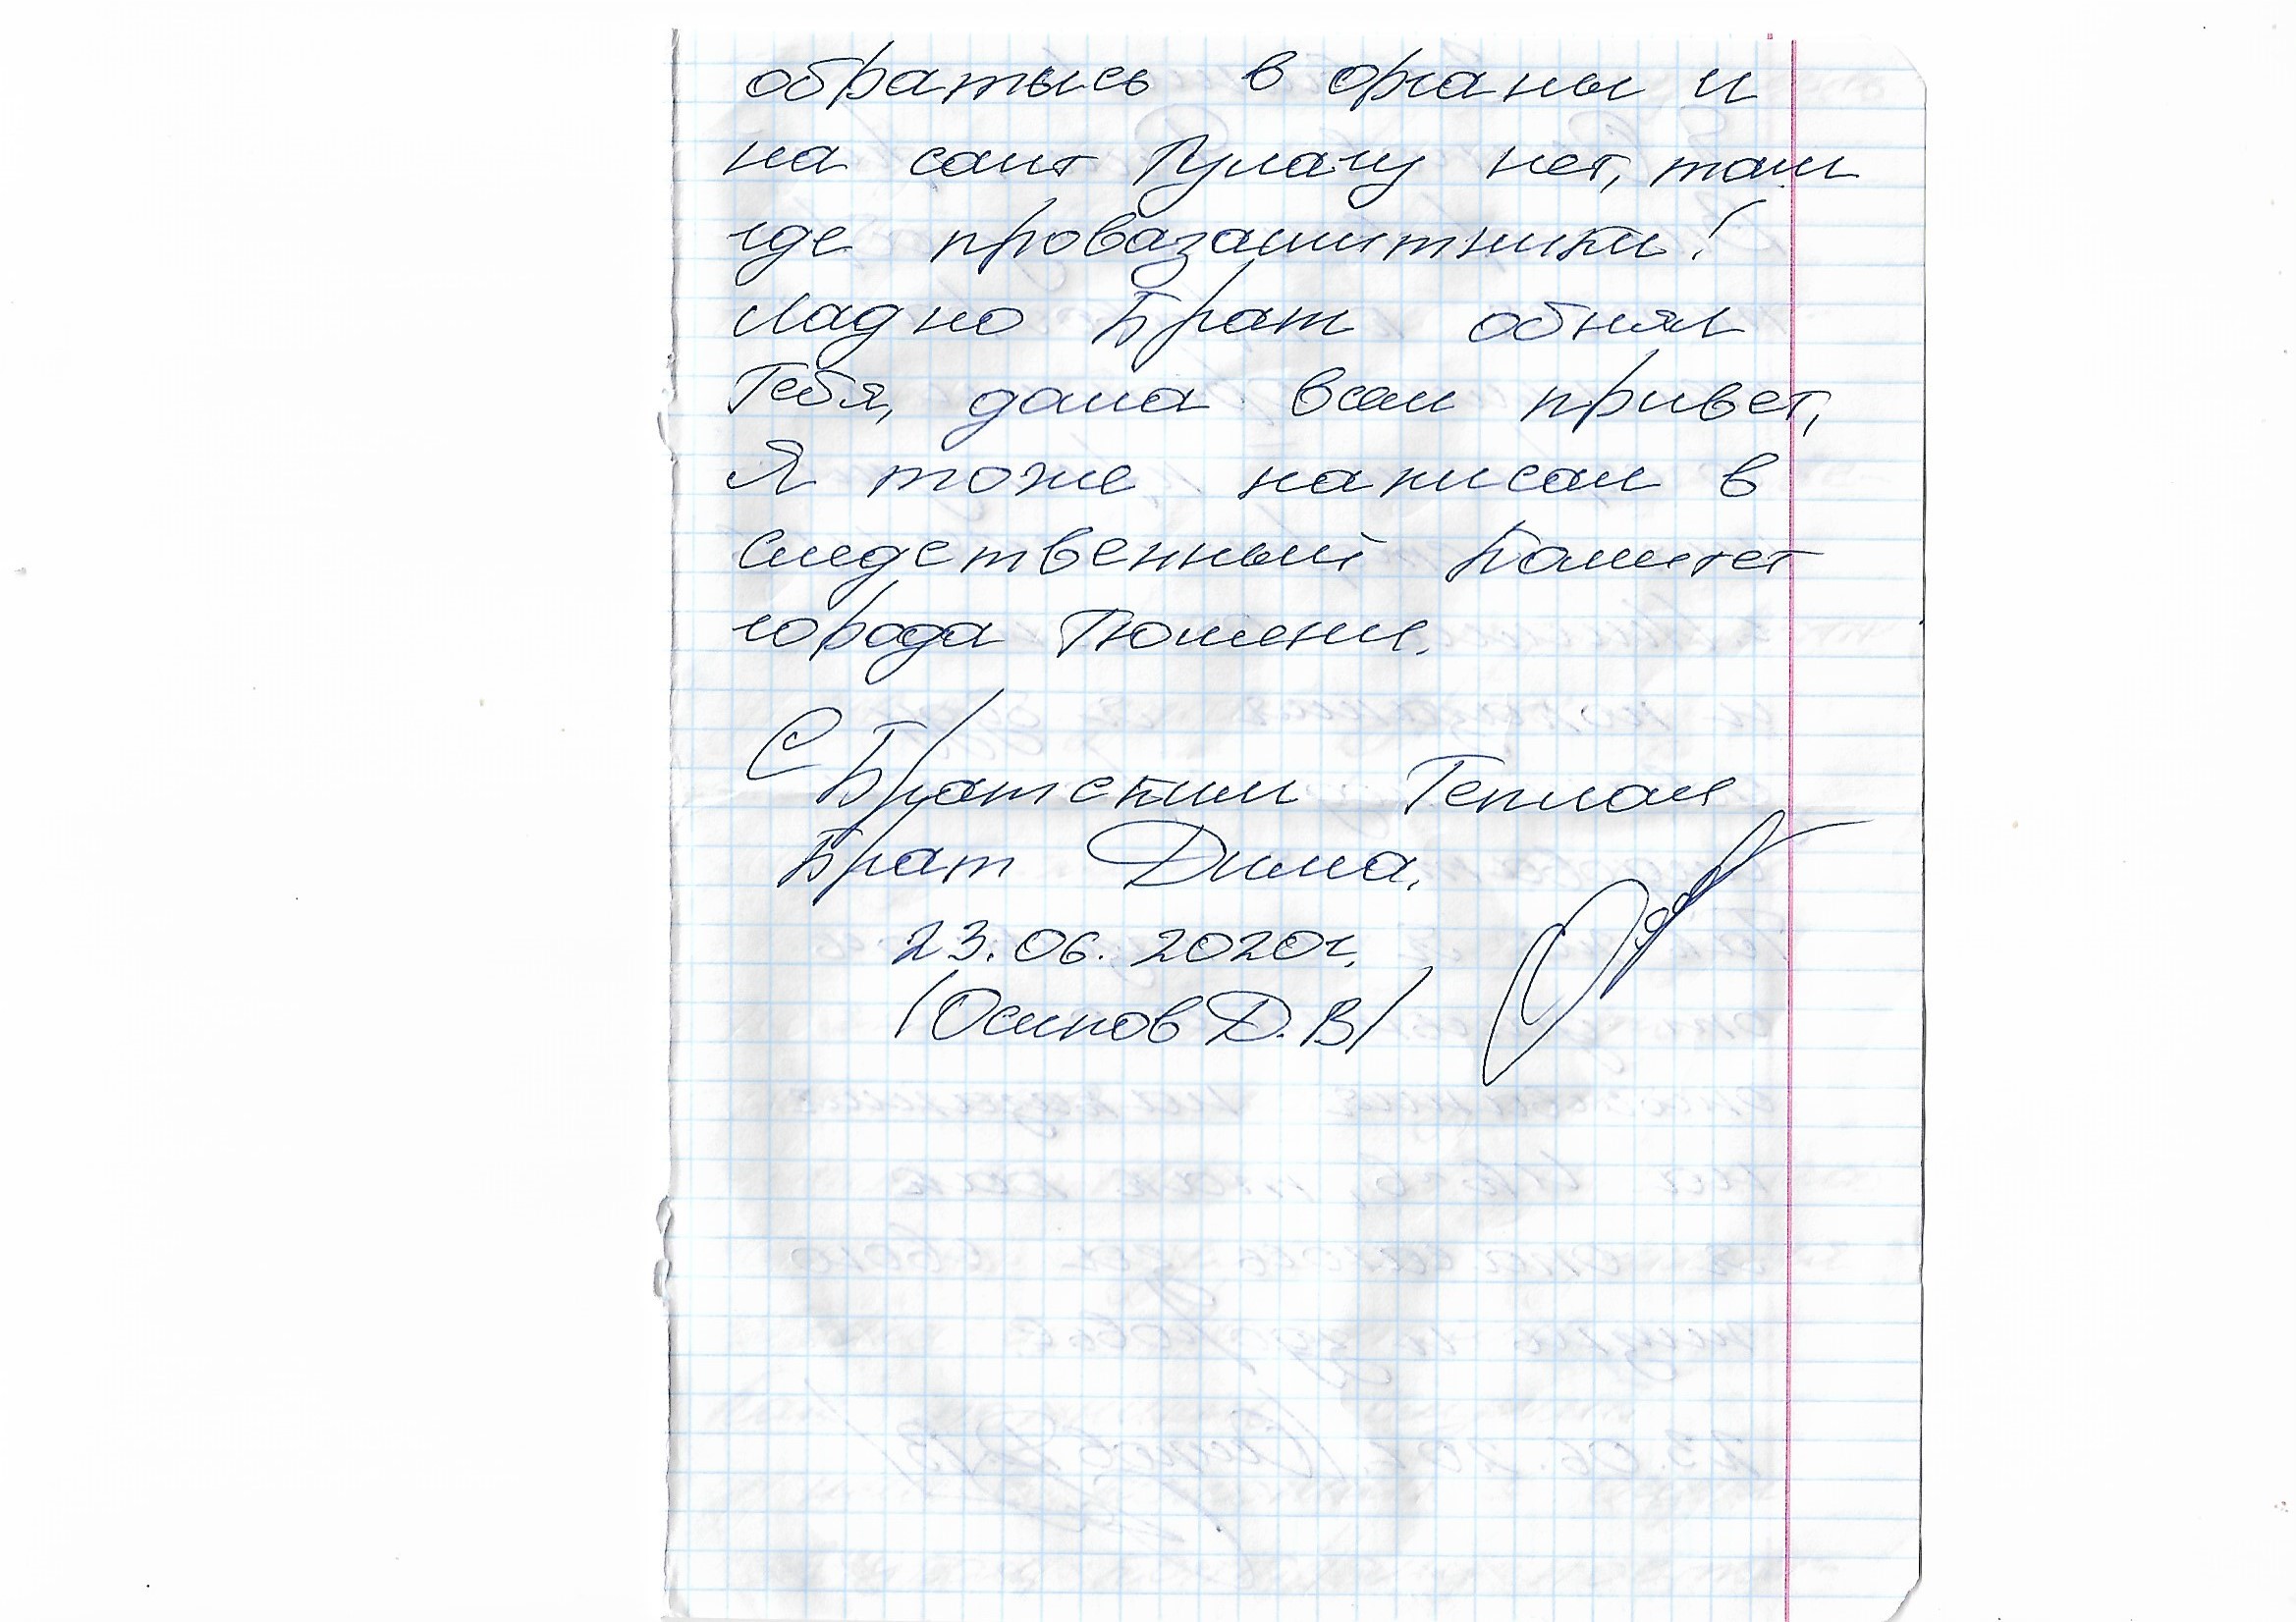 обратысь в органы и
на саит Гулагу нет, там
где провазашитники!
Ладно Брат обнял
Тебя, дома всем привет,
Я тоже написал в
следственный Комитет
города Тюмени.
С Братским Теплом
Брат Дима.
23.06.2020г.
/Осипов Д.В/